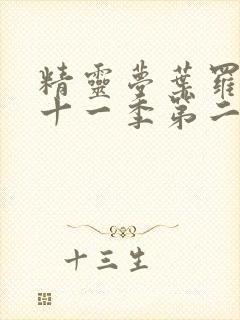 精靈夢葉羅
十一季第二
十三生